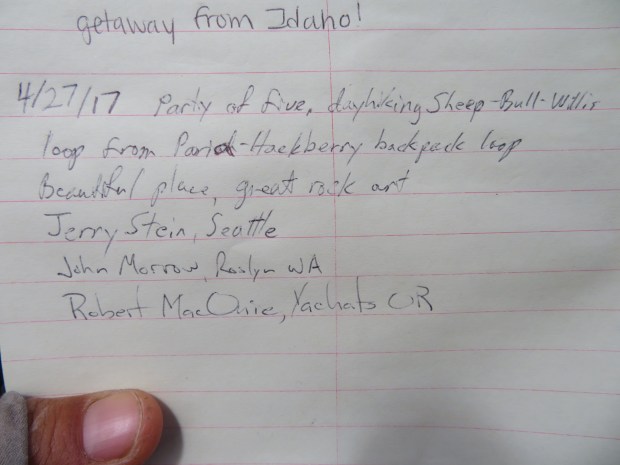 getaway from Idaho!
4/27/17 Party of five, dayhiking Sheep-Bull-Willis
loop from -Hackberry backpack loop
Beautiful place, great rock art
Jerry Stein, Seattle
John Morrow, Roslyn WA
Robert Yachats OR